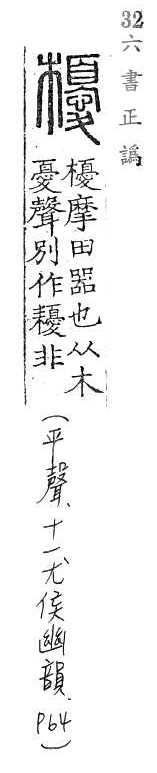 32六書正譌
櫌
櫌摩田器也从木
憂聲別作耰非
(平聲、十一尤侯幽韻 P64)